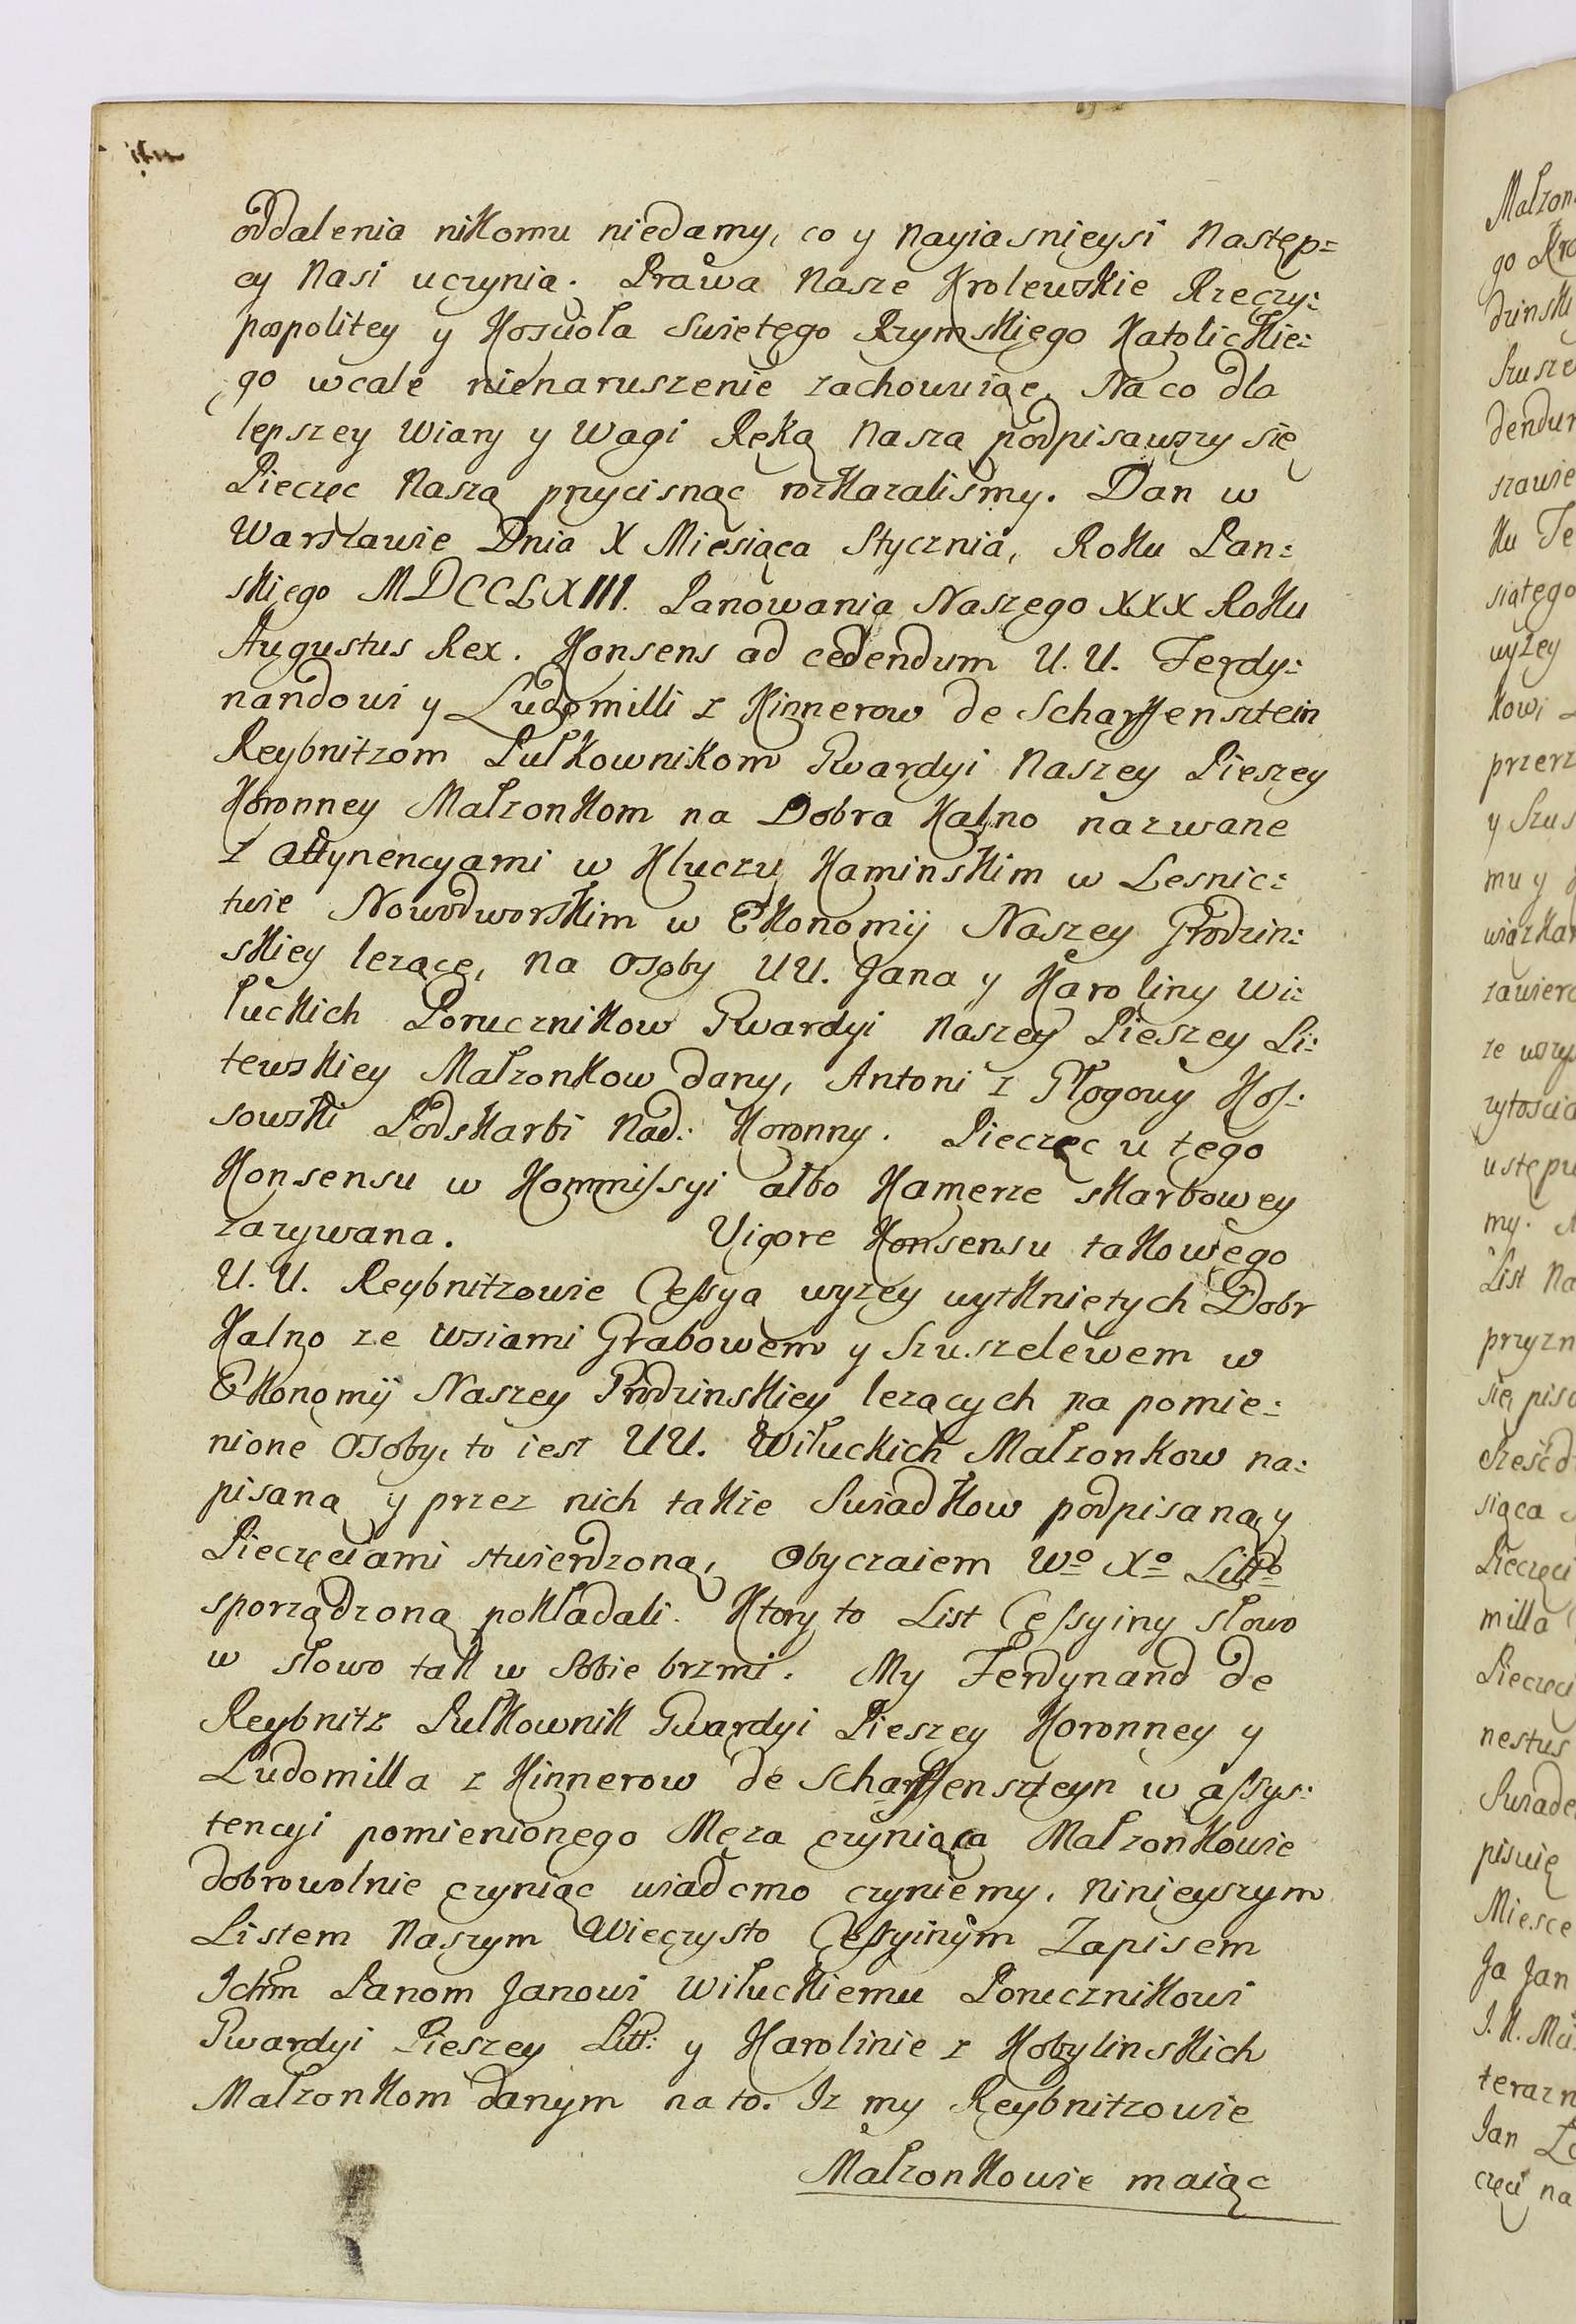 oddalenia nikomu niedamy, co y Nayiasnieysi Następ=
cy Nasi uczynią. Prawa Nasze Krolewskie Rzeczy:
pospolitey y Kosciola Swietego Rzymskiego Katolickie:
go wcale nienaruszenie zachowuiąc. Na co dla
lepszey Wiary y Wagi Ręką Naszą podpisawszy się
Pieczęc Naszą przycisnąc rozkazalismy. Dan w
Warszawie Dnia X Miesiąca Stycznia, Roku Pan:
skiego MDCCLXIII. Panowania Naszego XXX Roku
Augustus Rex. Konsens ad cedendum U. U. Ferdy:
nandowi y Ludomilli z Kinnerow de Scharffensztein
Reybnitzom Pułkownikom Gwardyi Naszey Pieszey
Koronney Małzonkom na Dobra Kalno nazwane
z attynencyami w Kluczu Kaminskim w Lesnic:
twie Nowodworskim w Ekonomij Naszey Grodzin:
skiey lezące, na Osoby UU. Jana y Karoliny Wi:
łuckich Porucznikow Gwardyi Naszey Pieszey Li:
tewskiey Małzonkow dany, Antoni z Głogowy Kos:
sowski Podskarbi Nad: Koronny. Pieczęc u tego
Konsensu w Kommissyi albo Kamerze skarbowey
zazywana. Vigore Konsensu takowego
U. U. Reybnitzowie Cessyą wyzey wytknietych Dobr
Kalno ze wsiami Grabowem y Szuszelewem w
Ekonomij Naszey Grodzinskiey lezących na pomie:
nione Osoby, to iest UU. Wiłuckich Małzonkow na:
pisaną y przez nich takze Swiadkow podpisaną y
Pieczęciami stwierdzoną, Obyczaiem Wo Xo Litto
sporządzoną pokładali. Ktory to List Cessyiny słowo
w słowo tak w sobie brzmi. My Ferdynand de
Reybnitz Pułkownik Gwardyi Pieszey Koronney y
Ludomilla z Kinnerow de Scharffenszteyn w assys:
tencyi pomienionego Męza czyniąca Małzonkowie
dobrowolnie czyniąc wiadomo czyniemy, Ninieyszym
Listem Naszym Wieczysto Cessyinym Zapisem
Ichm Panom Janowi Wiłuckiemu Porucznikowi
Gwardyi Pieszey Litt: y Karolinie z Kobylinskich
Małzonkom danym na to. Iz my Reybnitzowie
Małzonkowie maiąc